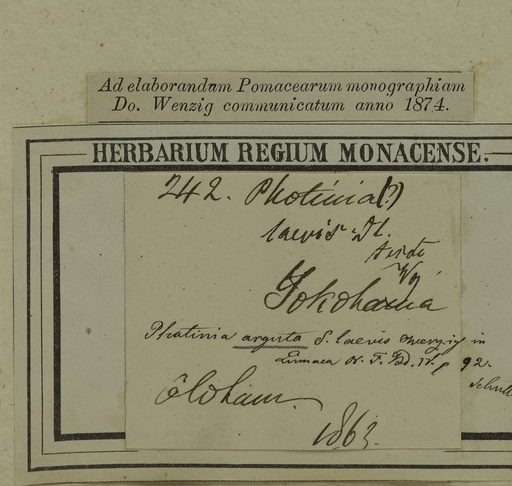 Ad elaborandum Pomacearum monographiam
Do. Wenzig communicatum anno 1874.
HERBARIUM REGIUM MONACENSE.
242. Photinia (?)
laevis Dl.
Yokohama
Photinia arguta S. laevis Wenzig in
Linnaea N. F. Bd. IV. p 92.
Oldham.
1863.